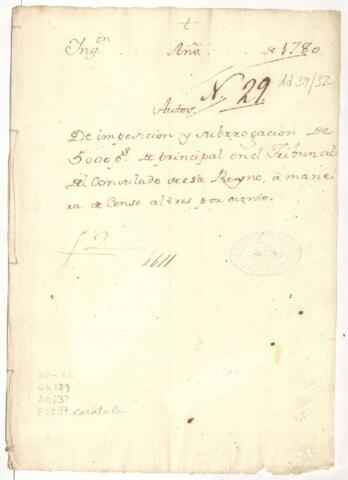 †
Ing.on Año de 1780
N. 29 Ad 39/32
Autos
De imposicion y subrrogación de
5000 ps. de principal en el Tribunal
del Consulado de este Reyno, à mane
ra de Censo al tres por ciento.
6611
SO-AD
CA:39
DO:37
FS:37 carátula